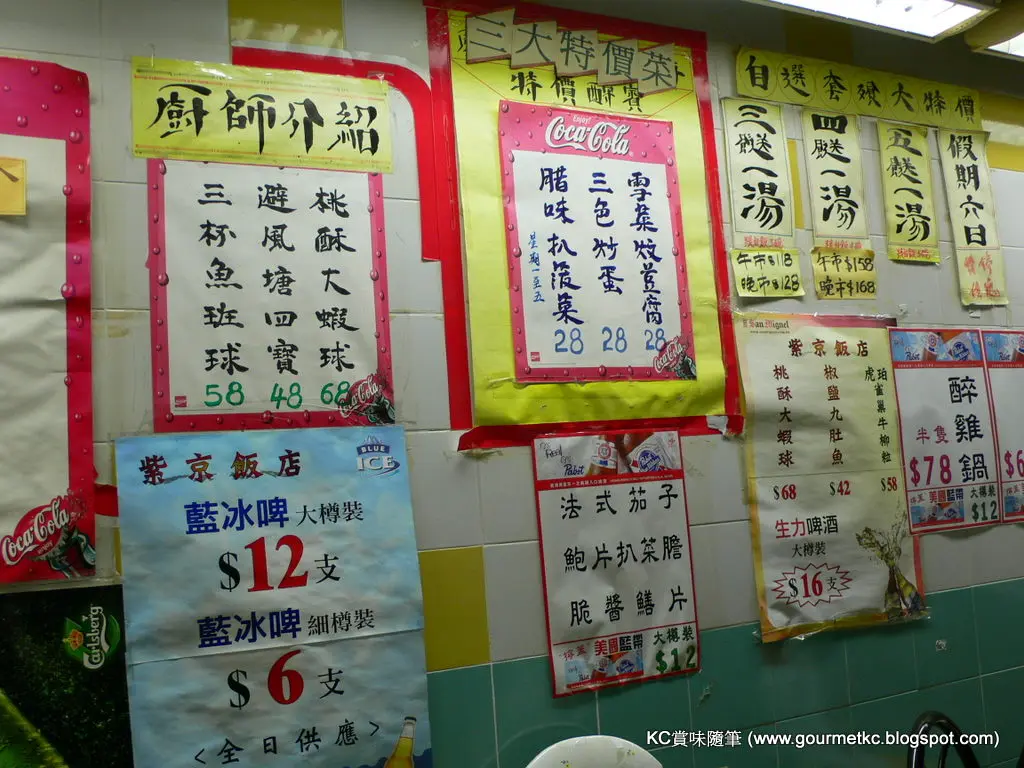 廚師介紹
桃酥大蝦球 68
避風塘四寶 48
三杯魚班球 58
Coca-Cola
Coca-Cola
Carlsberg
紫京飯店
BLUE ICE
藍冰啤 大樽裝
$12支
藍冰啤 細樽裝
$6支
<全日供應>
三大特價菜
特價酬賓
Enjoy!
Coca-Cola
雪菜炆荳腐 28
三色炒蛋 28
腊味扒菠菜 28
星期一至五
Coca-Cola
Pabst
法式茄子
鮑片扒菜膽
脆醬鱔片
美國藍帶
大樽裝
$12
自選套餸大特價
三餸一湯
午市$118
晚市$128
四餸一湯
午市$158
晚市$168
五餸一湯
假期六日
暫停
San Miguel
紫京飯店
桃酥大蝦球
$68
椒鹽九肚魚
$42
琥珀雀巢牛柳粒
$58
生力啤酒
大樽裝
$16支
Pabst
醉雞鍋
半隻
$78
美國藍帶
大樽裝
$12
Pabst
KC賞味隨筆 (www.gourmetkc.blogspot.com)